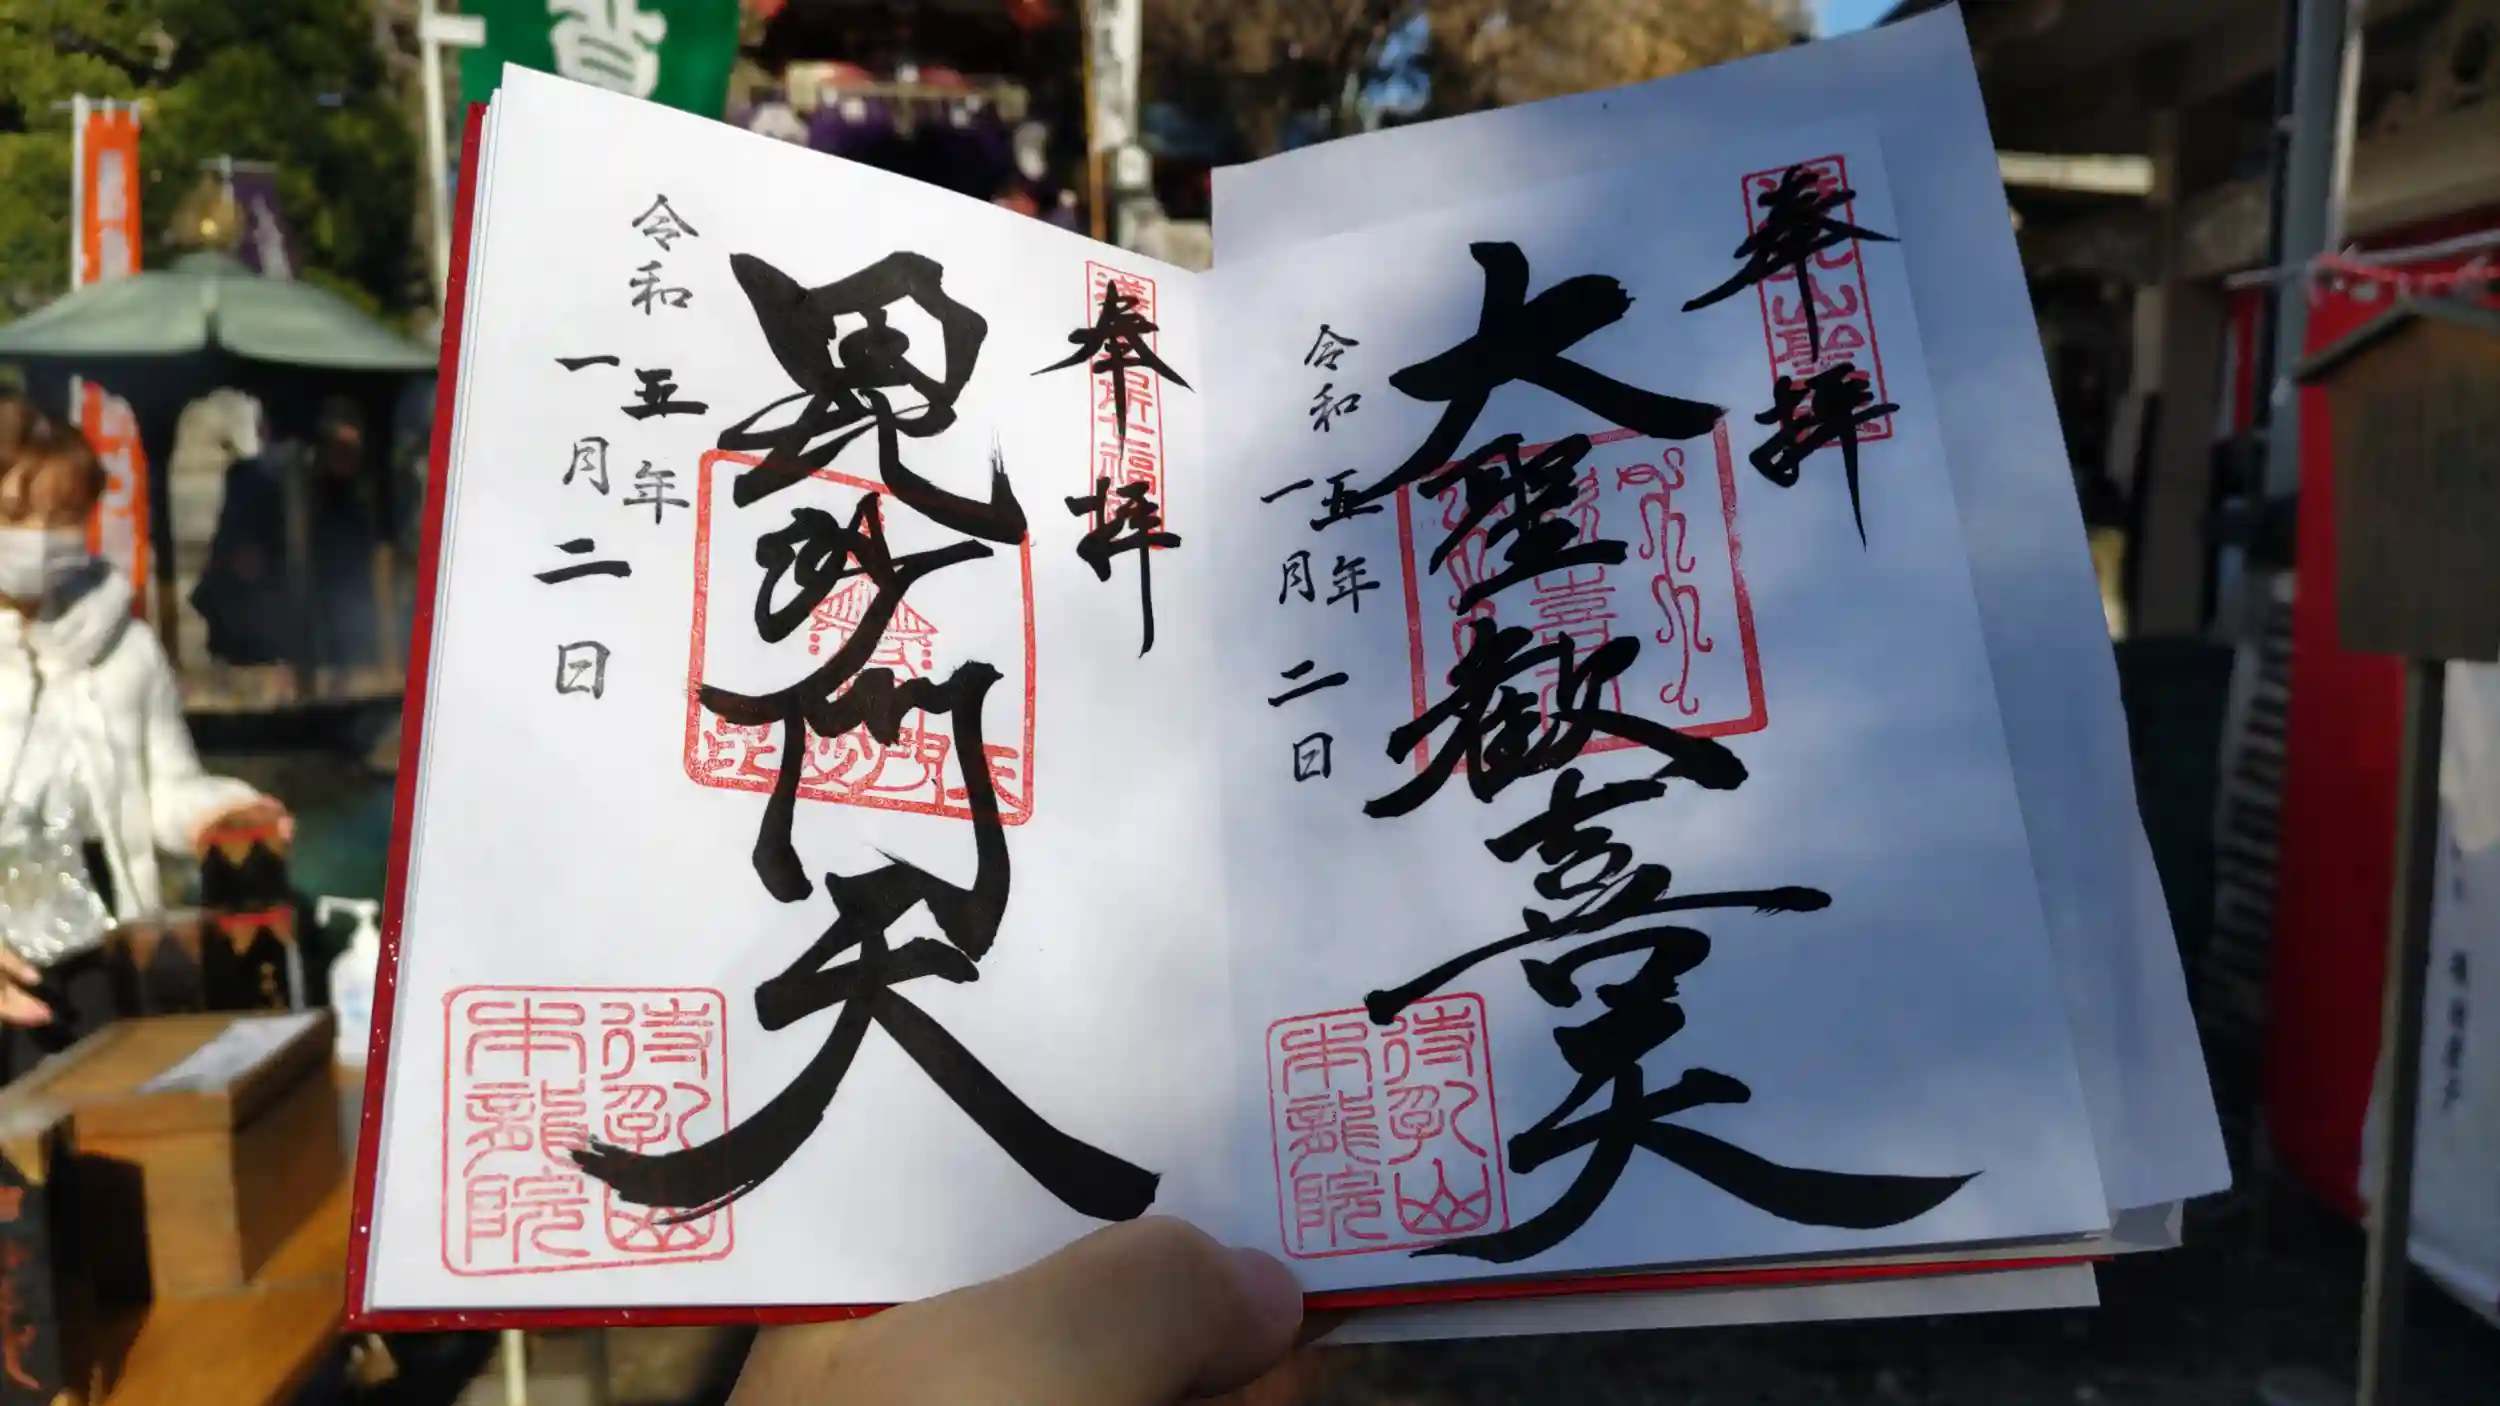 奉拝
大聖歓喜天
令和五年
一月二日
待乳山
本龍院
奉拝
毘沙門天
令和五年
一月二日
毘沙門天
待乳山
本龍院